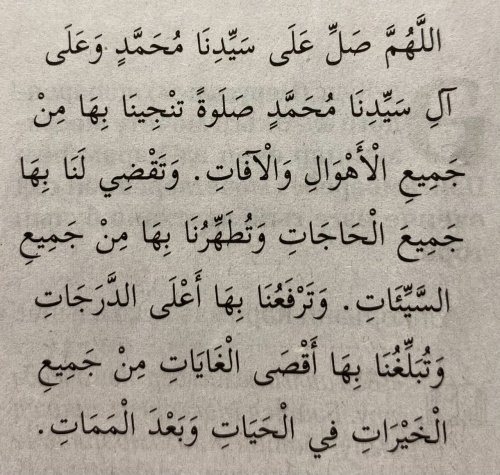 اللَّهُمَّ صَلِّ عَلَى سَيِّدِنَا مُحَمَّدٍ وَعَلَى
آلِ سَيِّدِنَا مُحَمَّدٍ صَلَوةً تنْجِينَا بِهَا مِنْ
جَمِيعِ الْأَهْوَالِ وَالْآفَاتِ. وَتَقْضِي لَنَا بِهَا
جَمِيعَ الْحَاجَاتِ وَتُطَهِّرُنَا بِهَا مِنْ جَمِيعِ
السَّيِّئَاتِ. وَتَرْفَعُنَا بِهَا أَعْلَى الدَّرَجَاتِ
وَتُبَلِّغُنَا بِهَا أَقْصَى الْغَايَاتِ مِنْ جَمِيعِ
الْخَيْرَاتِ فِي الْحَيَاتِ وَبَعْدَ الْمَمَاتِ.